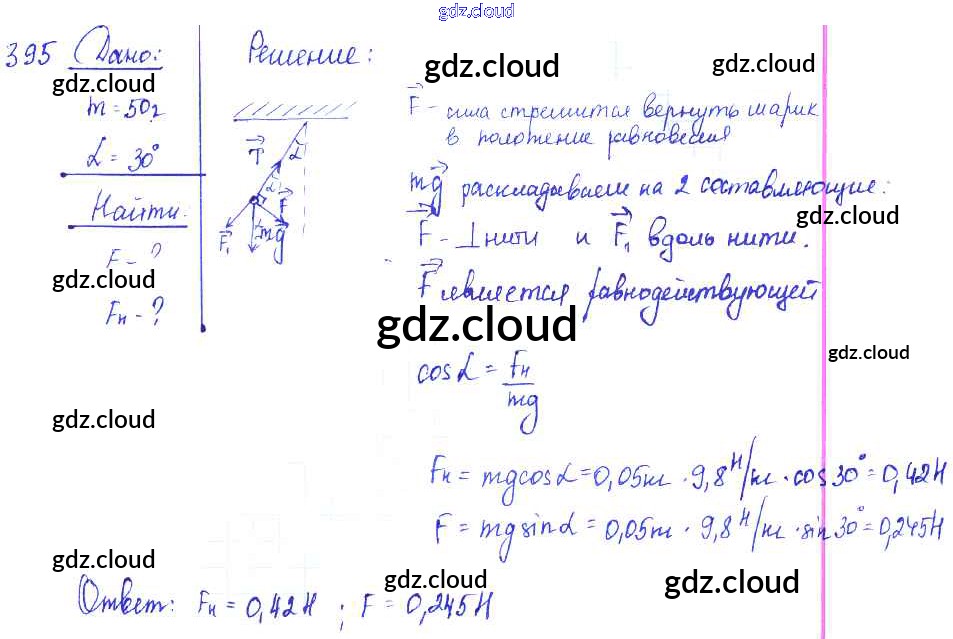 gdz.cloud
395 Дано:
gdz.cloud
m = 50г
α = 30°
Найти:
F - ?
gdz.cloud
Fн - ?
Решение:
gdz.cloud
gdz.cloud
T α
α F
F₁ α mg
F - сила стремится вернуть шарик
в положение равновесия
mg раскладываем на 2 составляющие:
gdz.cloud
F - ⊥ нити и F₁ вдоль нити.
F является равнодействующей
gdz.cloud
gdz.cloud
cos α = Fн/mg
gdz.cloud
Fн = mg cos α = 0,05кг · 9,8 Н/кг · cos 30° = 0,42Н
F = mg sin α = 0,05кг · 9,8 Н/кг · sin 30° = 0,245Н
gdz.cloud
gdz.cloud
gdz.cloud
Ответ: Fн = 0,42Н ; F = 0,245Н